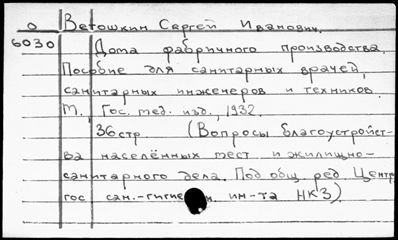 О Ветошкин Сергей Иванович.
6030 Дома фабричного производства.
Пособие для санитарных врачей,
санитарных инженеров и техников.
М., Гос. мед. изд., 1932.
36 стр. (Вопросы благоустройст-
ва населённых мест и жилищно-
санитарного дела. Под общ. ред. Центр.
гос. сан.-гигиен. ин-та НКЗ)